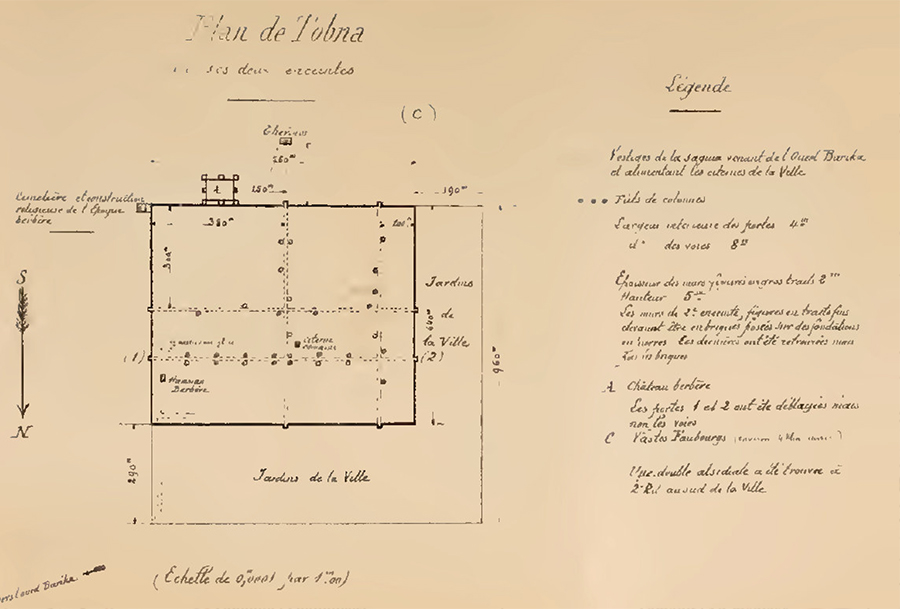 Plan de Tobna
ses deux enceintes
(C)
Thermes
260m
150m
190m
A
Cimetière et construction
religieuse de l'Epoque
berbère
380m
100m
300m
S
N
Jardins
de
la Ville
640m
960m
(1)
(2)
Citerne
Hammam
Berbère
290m
Jardins de la Ville
(Echelle de 0,m001 par 1m.00)
vers l'oued Barika
Légende
Vestiges de la saguia venant de l'Oued Barika
et alimentant les citernes de la Ville
Futs de colonnes
Largeur intérieure des portes 4m
do des voies 8m
Epaisseur des murs figurés en gros traits 2m
Hauteur 5m
Les murs de 2e enceinte, figurés en traits fins
devaient être en briques posées sur des fondations
en pierres Ces dernières ont été retrouvées mais
briques
A Château berbère
Les portes 1 et 2 ont été déblayées mais
non les voies
C Vastes Faubourgs
Une double absidiale a été trouvée à
2 Kil au sud de la Ville